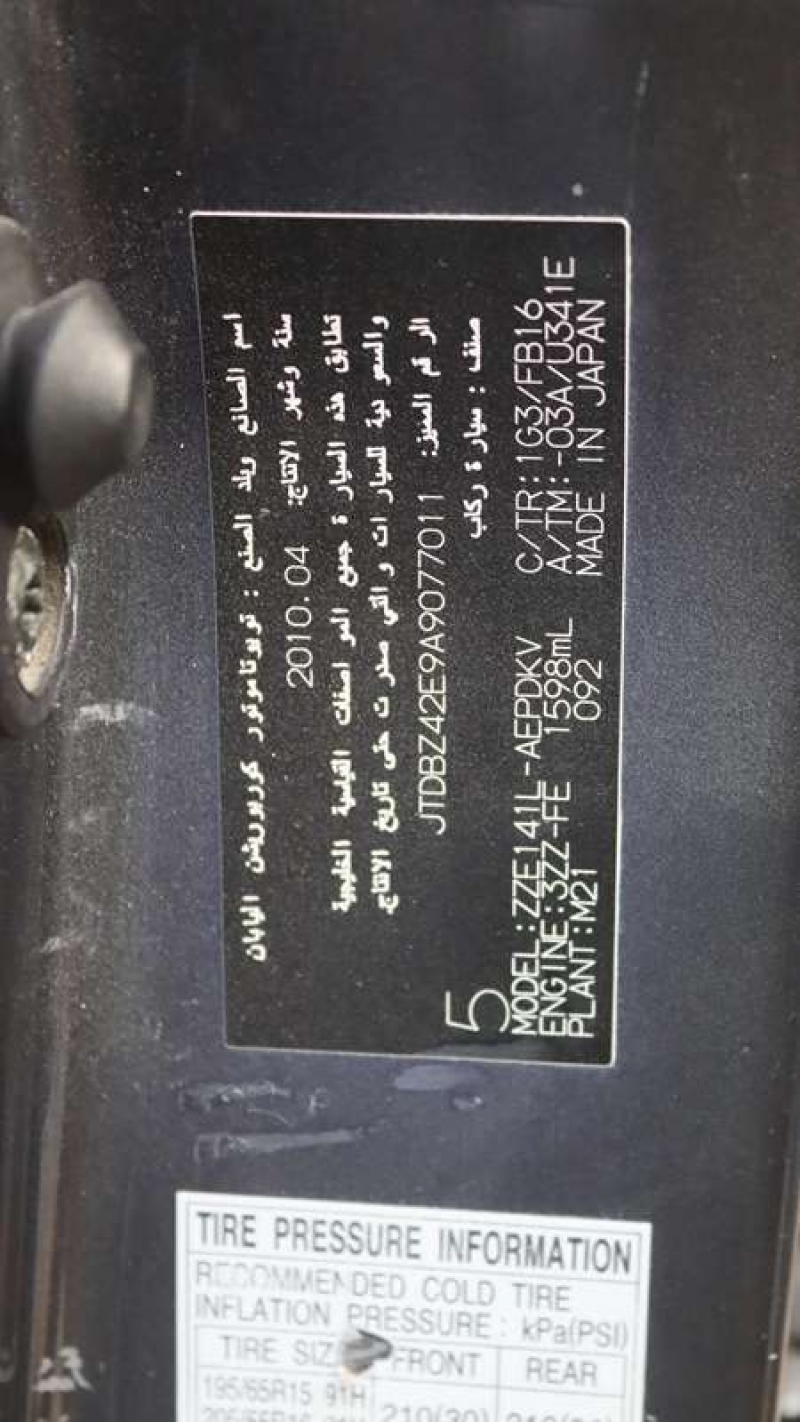 اسم الصانع وبلد الصنع : تويوتا موتور كوربوريشن اليابان
سنة وشهر الانتاج: 2010.04
تطابق هذه السيارة جميع المواصفات القياسية الخليجية
والسعودية للسيارات والتي صدرت حتى تاريخ الانتاج.
الرقم المميز: JTDBZ42E9A9077011
صنف : سيارة ركاب
5
MODEL:ZZE141L-AEPDKV C/TR:1G3/FB16
ENGINE:3ZZ-FE 1598mL A/TM:-03A/U341E
PLANT:M21 092 MADE IN JAPAN
TIRE PRESSURE INFORMATION
RECOMMENDED COLD TIRE
INFLATION PRESSURE : kPa(PSI)
TIRE FRONT REAR
195/65R15 91H 210(30)